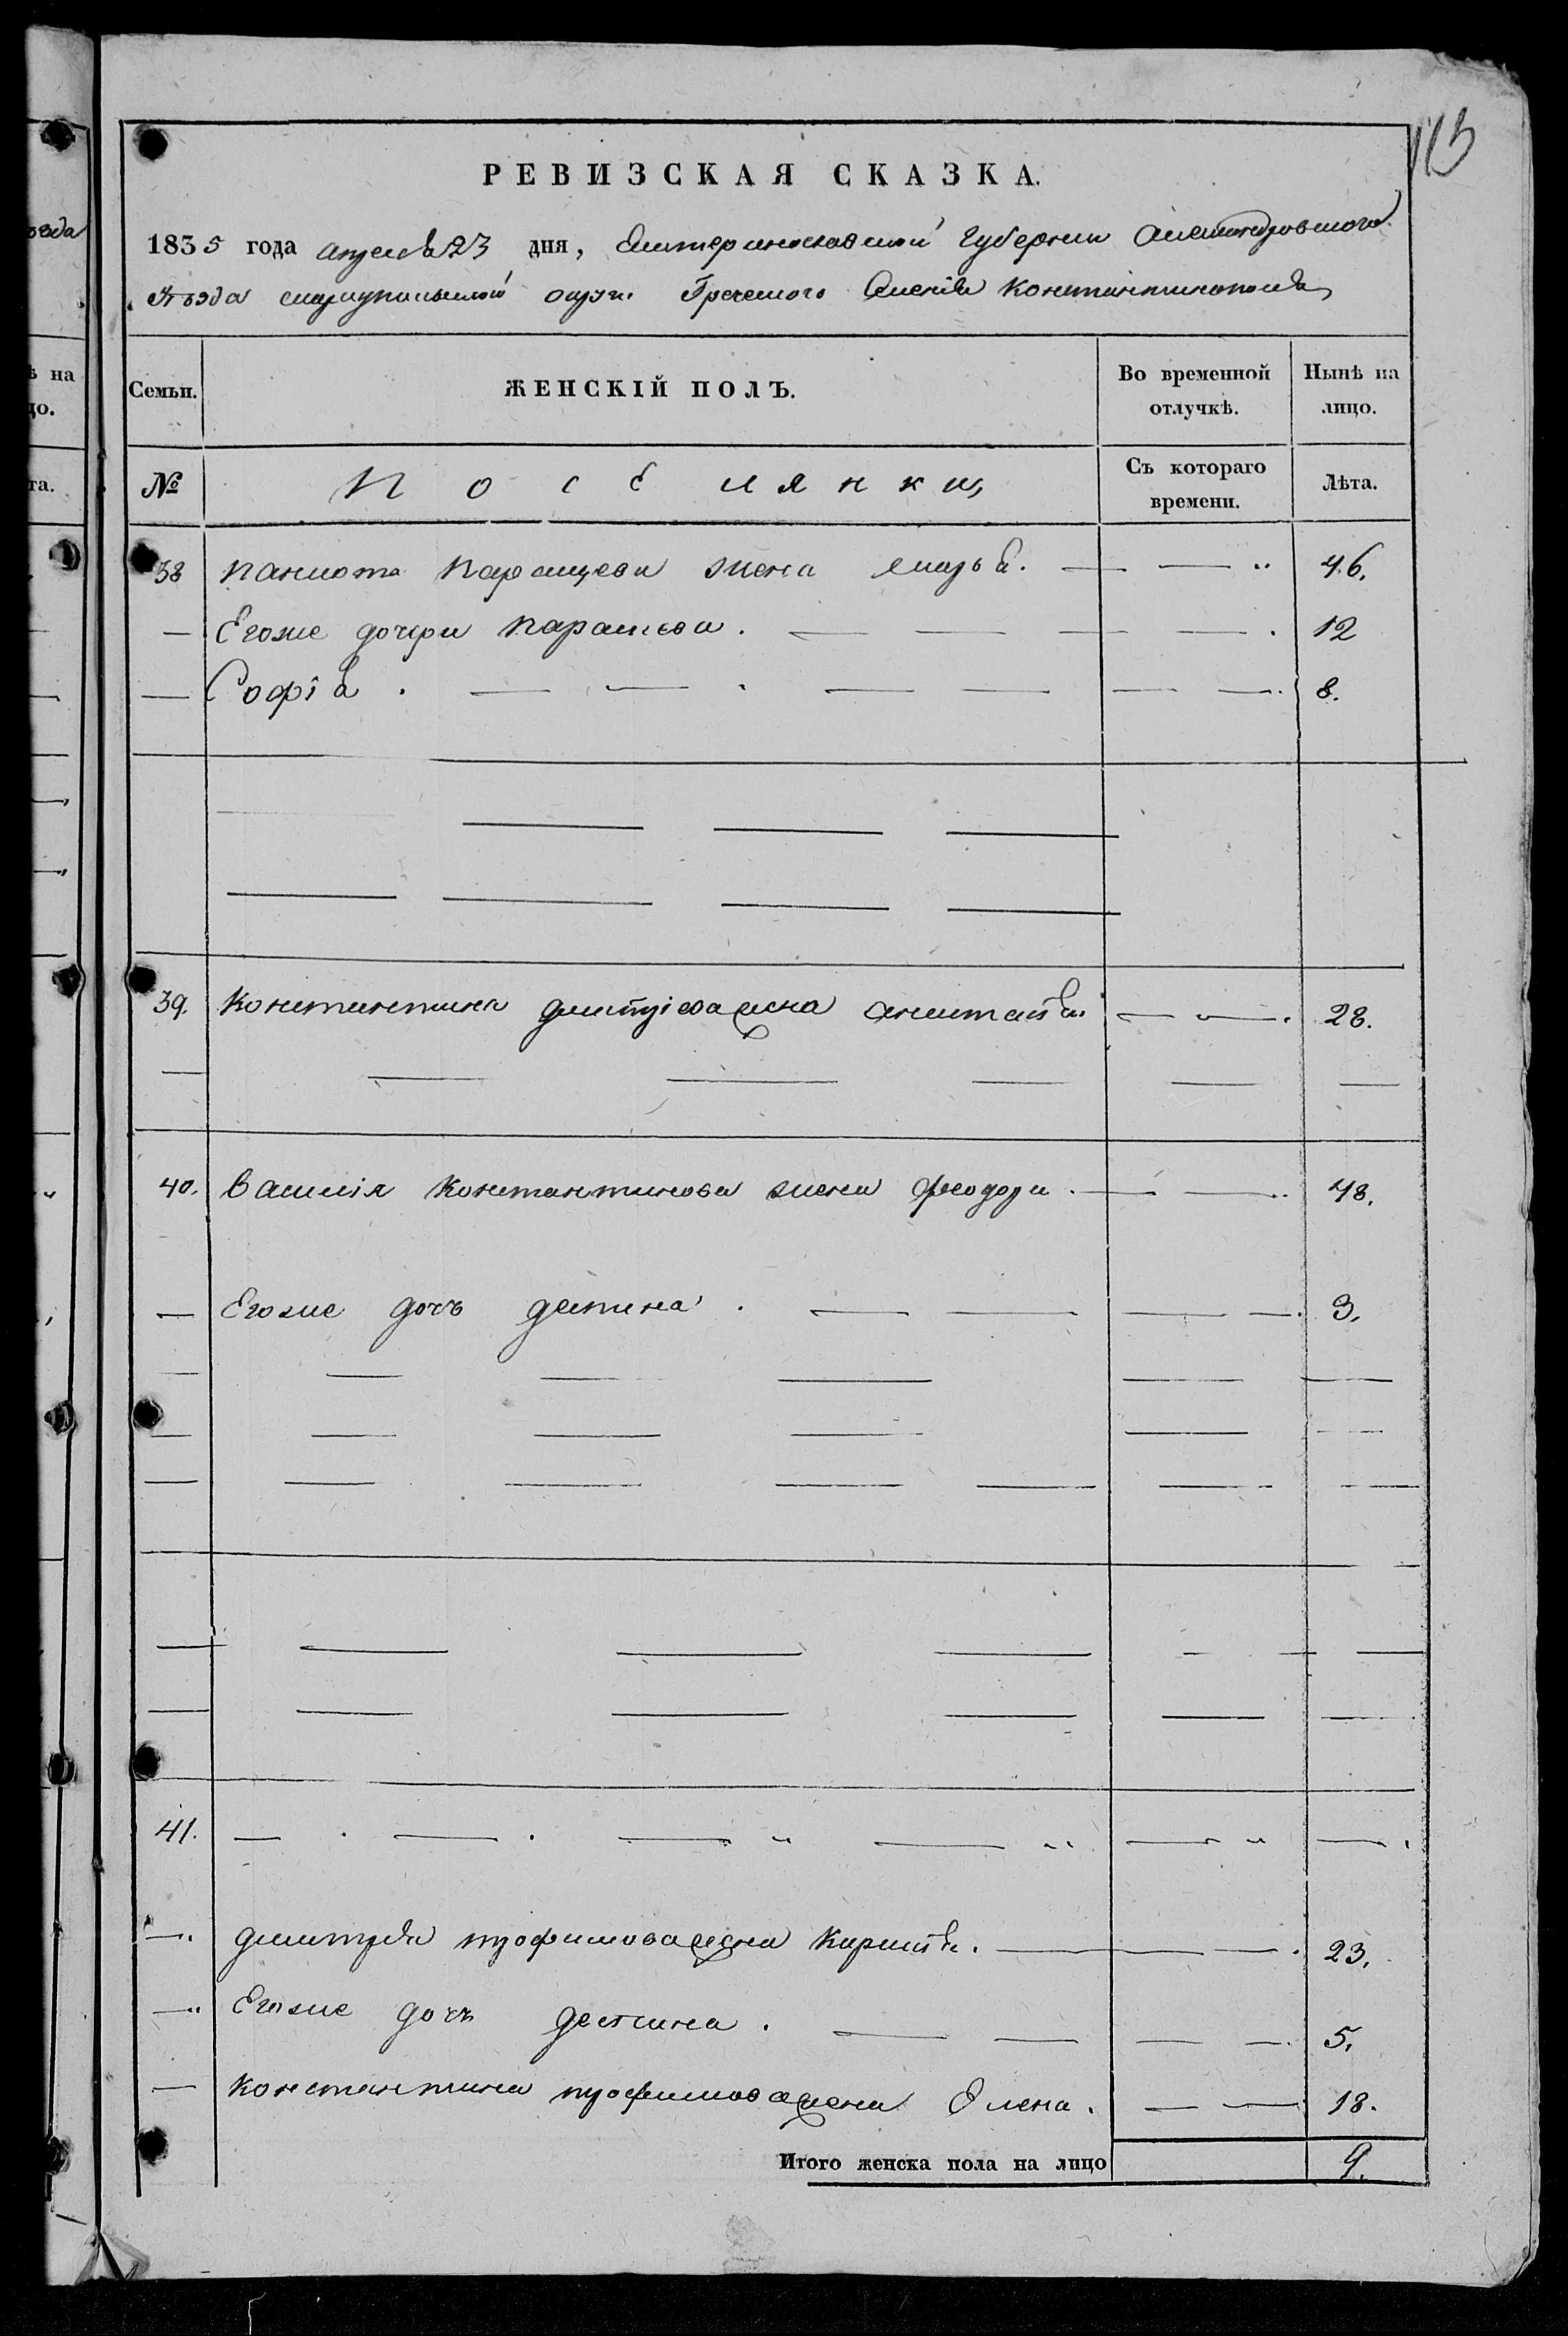 113
РЕВИЗСКАЯ СКАЗКА.
1835 года апреля 23 дня, Екатеринославской Губернии Александровского
уѣзда мариупольской округи Греческого Селенія Константинополя
Семьи. ЖЕНСКІЙ ПОЛЪ. Во временной отлучкѣ. Нынѣ на лицо.
№ Поселянки Съ котораго времени. Лѣта.
38 панаиота жена марья. 46.
— Егоже дочери параскова. 12
— Софія. 8.
39. Константина дмитріева жена анастасія 28.
40. василія Константинова жена феодора. 48.
— Егоже дочь деспина. 3.
41.
дмитрія трофимова жена 23.
Егоже дочь деспина. 5.
— константина трофимова жена Олена. 18.
Итого женска пола на лицо 9.